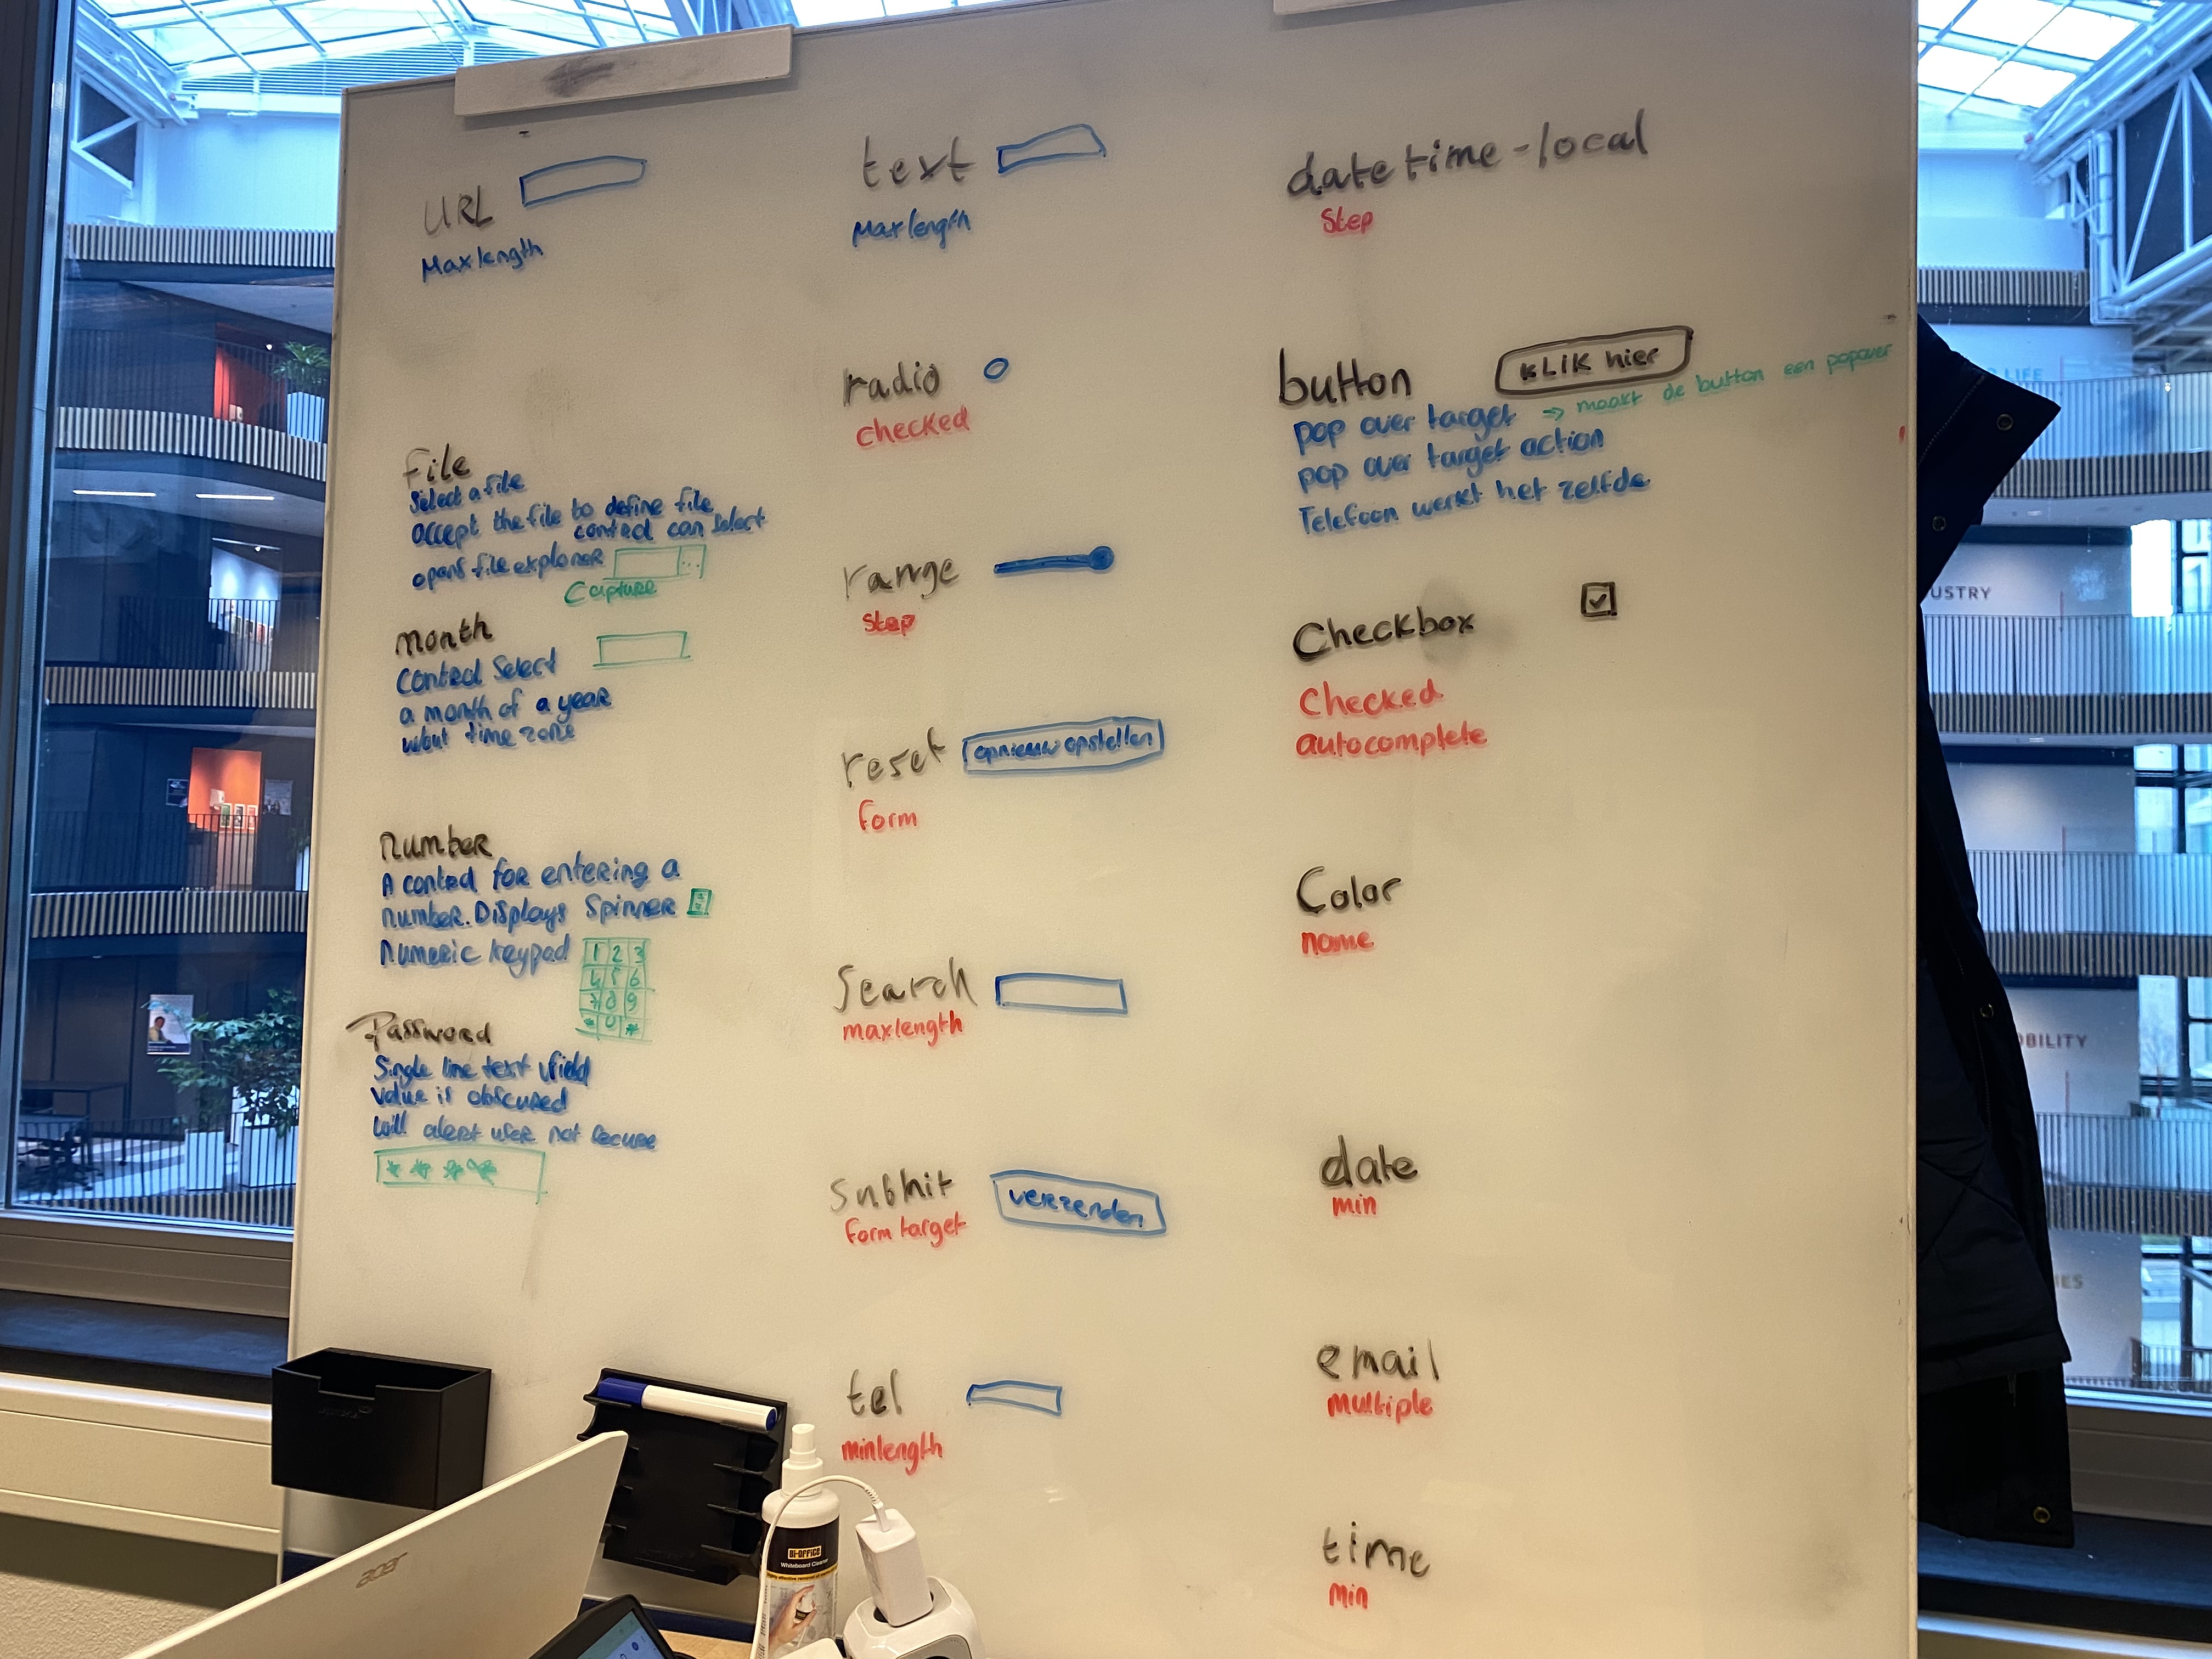 URL
Maxlength
File
Select a file
accept the file to define file
control can select
opens file explorer
Capture
month
Control Select
a month of a year
wout time zone
number
A control for entering a
number. Displays Spinner
Numeric keypad
1 2 3
4 5 6
7 8 9
* 0 *
Password
Single line text
value is obscured
Will alert user not secure
* * * *
text
Maxlength
radio
checked
range
Step
reset
opnieuw opstellen
form
Search
maxlength
submit
verzenden
form target
tel
minlength
datetime-local
Step
button
KLIK hier
pop over target => maakt de button een popover
pop over target action
Telefoon werkt het zelfde
Checkbox
Checked
autocomplete
Color
name
date
min
email
multiple
time
min
LIFE
USTRY
OBILITY
IES
acer
Bi-OFFICE
Whiteboard Cleaner